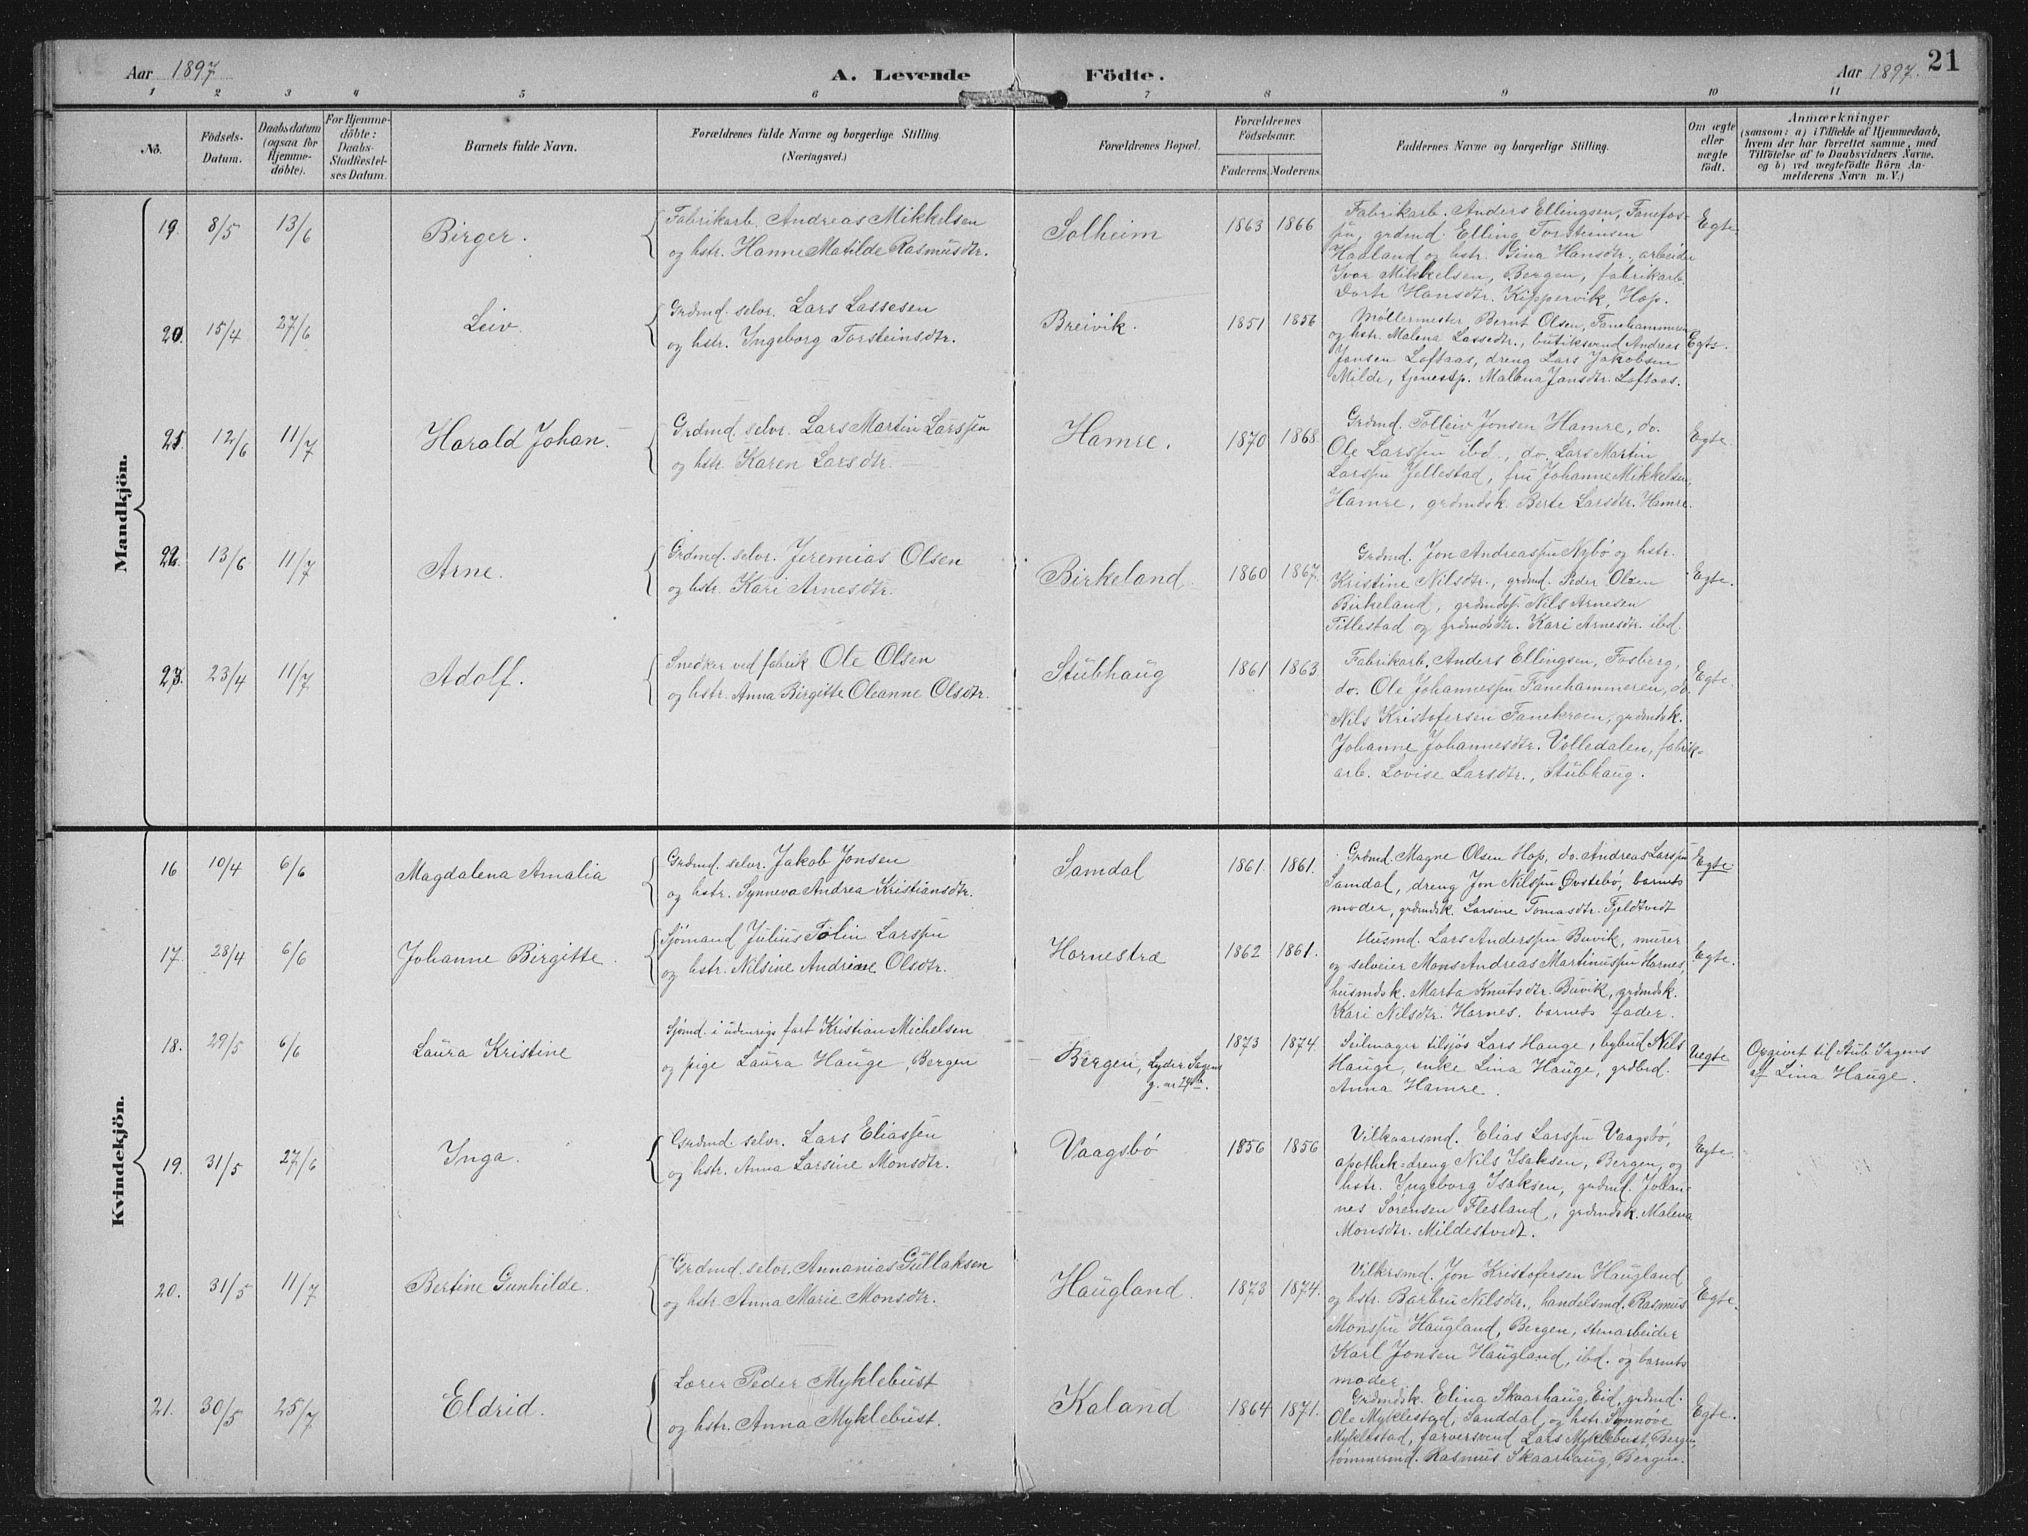 Aar 1897
A. Levende Födte.
Aar 1897. 21
1 2 3 4 5 6 7 8 9 10 11
No.
Födsels-Datum.
Daabsdatum (ogsaa for Hjemmedöbte).
For Hjemmedöbte: Daabs-Stadfæstelses Datum.
Barnets fulde Navn.
Forældrenes fulde Navne og borgerlige Stilling. (Næringsvei.)
Forældrenes Bopæl.
Forældrenes Födselsaar.
Faderens. Moderens.
Faddernes Navne og borgerlige Stilling.
Om ægte eller uægte födt.
Anmærkninger (saasom: a) i Tilfælde af Hjemmedaab, hvem der har forrettet samme, med Tilföielse af to Daabsvidners Navne, og b) ved uægtefödte Börn Anmelderens Navn m. V.)
Mandkjön.
19. 8/5 13/6 Birger.
Fabrikarb. Andreas Mikkelsen
og hstr. Hanne Matilde Rasmusdtr.
Solheim 1863 1866
Fabrikarb. Anders Ellingsen, Fanefos-
sen, grdmd. Elling Torsteinsen
Haaland og hstr. Gina Hansdtr., arbeider
Ivar Mikkelsen, Bergen, fabrikarb.
Dorte Hansdtr. Kippervik, Hop.
Egte
20. 15/4 27/6 Leiv.
Grdmd. selvr. Lars Lassesen
og hstr. Ingeborg Torsteinsdtr.
Breivik. 1851 1856
Møllermester Bernt Olsen, Fanehammeren
og hstr. Malena Lassedtr., butiksvend Andreas
Jansen Loftaas, dreng Lars Jakobsen
Milde, tjenestp. Malena Jansdtr. Loftaas.
Egte.
21. 12/6 11/7 Harald Johan.
Grdmd. selvr. Lars Martin Larssen
og hstr. Karen Larsdtr.
Hamre. 1870 1868.
Grdmd. Tolleiv Jonsen Hamre, do.
Ole Larssen ibd., do. Lars Martin
Larssen Jellestad, fru Johanne Mikkelsen,
Hamre, grdmdsk. Berte Larsdtr. Hamre.
Egte.
22. 13/6 11/7 Arne.
Grdmd. selvr. Jeremias Olsen
og hstr. Kari Arnesdtr.
Birkeland. 1860 1867.
Grdmd. Jon Andreassen Nybø og hstr.
Kristine Nilsdtr., grdmd. Peder Olsen
Birkeland, grdmdss. Nils Arnesen
Titlestad og grdmdsdtr. Kari Arnesdtr. ibd.
Egte.
23. 23/4 11/7 Adolf.
Snedker ved fabrik Ole Olsen
og hstr. Anna Birgitte Oleanne Olsdtr.
Stubhaug 1861 1863
Fabrikarb. Anders Ellingsen, Fosberg,
do. Ole Johannessen Fanehammeren, do.
Nils Kristofersen Fanekroen, grdmdsk.
Johanne Johannesdtr. Volledalen, fabrik-
arb. Lovise Larsdtr., Stubhaug.
Egte.
Kvindekjön.
16 10/4 6/6 Magdalena Amalia
Grdmd. selvr. Jakob Jonsen
og hstr. Synneva Andrea Kristiansdtr.
Samdal 1861. 1861.
Grdmd. Magne Olsen Hop, do. Andreas Larssen
Samdal, dreng Jon Nilssen Øvstebø, barnets
moder, grdmdsk. Larsine Tomasdtr. Fjeldtvedt
Egte
17. 28/4 6/6 Johanne Birgitte.
Sjömand Julius Tolin Larssen
og hstr. Nilsine Andrine Olsdtr.
Hornestræ 1862 1861.
Husmd. Lars Anderssen Buvik, murer
og selveier Mons Andreas Martinussen Hornes,
husmdsk. Marta Knutsdtr. Buvik, grdmdsk.
Kari Nilsdtr. Hornes. barnets fader.
Egte.
18. 29/5 6/6 Laura Kristine
Sjömd. i udenrigs fart Kristian Michelsen
og pige Laura Hauge, Bergen
Bergen, Lyder Sagens
g. nr 29
1873 1874.
Seilmager tilsjös Lars Hauge, bybud Nils
Hauge, enke Lina Hauge, grdbrd.
Anna Hamre.
Uegte
Opgivet til Stub Irgens
af Lina Hauge.
19. 31/5 27/6 Inga.
Grdmd. selvr. Lars Eliassen
og hstr. Anna Larsine Monsdtr.
Vaagsbø 1856 1856
Vilkaarsmd. Elias Larssen Vaagsbø,
apothek=dreng Nils Isaksen, Bergen, og
hstr. Ingeborg Isaksen, grdmd. Johan-
nes Sørensen Flesland, grdmdsk. Malena
Monsdtr. Mildestvedt.
Egte.
20. 31/5 11/7 Bertine Gunhilde.
Grdmd. selvr. Annanias Gullaksen
og hstr. Anna Marie Monsdtr.
Haugland. 1873 1874.
Vilkrsmd. Jon Kristofersen Haugland
og hstr. Barbru Nilsdtr., handelsmd. Rasmus
Monssen Haugland, Bergen, stenarbeider
Karl Jonsen Haugland, ibd. og barnets
moder
Egte.
21. 30/5 25/7 Eldrid.
Lærer Peder Myklebust
og hstr. Anna Myklebust.
Kaland 1864 1871.
Grdmdsk. Elina Skaarhaug, Eid, grdmd.
Ole Myklestad, Sanddal, og hstr. Synnøve
Myklestad, farversvend Lars Myklebust, Bergen,
tømmermd. Rasmus Skaarhaug, Bergen.
Egte.